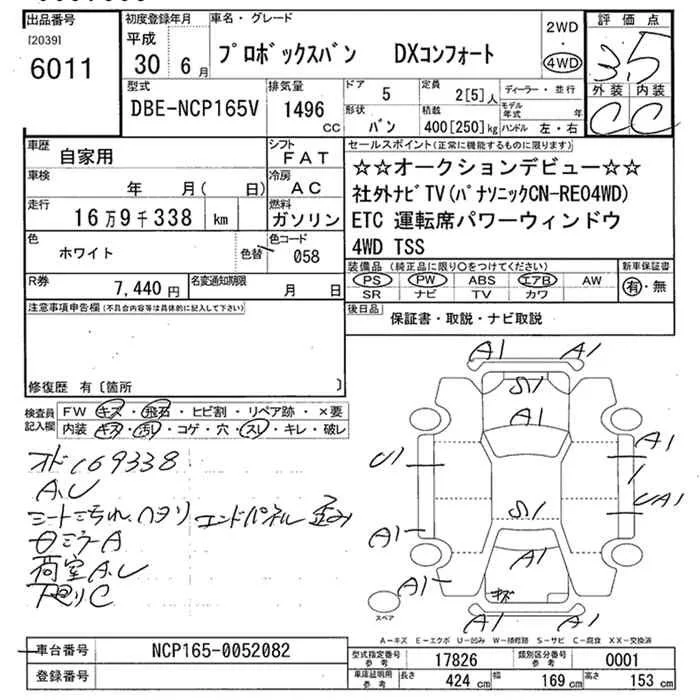 出品番号
[2039]
6011
初度登録年月
平成
30 6月
車名・グレード
プロボックスバン DXコンフォート
2WD
・
4WD
評価点
3.5
外装 内装
C C
型式
DBE-NCP165V
排気量
1496
CC
ドア
5
定員
2[5]人
形状
バン
積載
400[250]kg
ディーラー・並行
モデル年式 年
ハンドル 左・右
車歴
自家用
シフト
FAT
車検
年 月( 日)
冷房
AC
走行
16万9千338 km
燃料
ガソリン
色
ホワイト
色替
色コード
058
R券
7,440円
名変通知期限
月 日
セールスポイント(正常に機能するものに限ります)
☆☆オークションデビュー☆☆
社外ナビTV(パナソニックCN-RE04WD)
ETC 運転席パワーウィンドウ
4WD TSS
装備品 (純正品に限り○をつけてください)
PS PW ABS エアB AW
SR ナビ TV カワ
新車保証書
有・無
後日品
保証書・取説・ナビ取説
注意事項申告欄(不具合内容等は具体的に記入して下さい)
修復歴 有〔箇所 〕
検査員記入欄
FW キズ・飛石・ヒビ割・リペア跡・×要
内装 キズ・汚レ・コゲ・穴・スレ・キレ・破レ
オド169338
A.U
シートこちれ、ヘタリ エンドパネル歪み
日ミラーA
荷室A.U
下廻りC
A1 A1
S1
A1
U1
A1
UA1
S1
A1
A1
A1
キズ
A1 A1
スペア
A-キズ E-エクボ U-凹み W-補修跡 S-サビ C-腐食 XX-交換済
車台番号
NCP165-0052082
登録番号
型式指定番号
参考
17826
類別区分番号
参考
0001
車庫証明用
参考
長さ
424 cm
幅
169 cm
高さ
153 cm